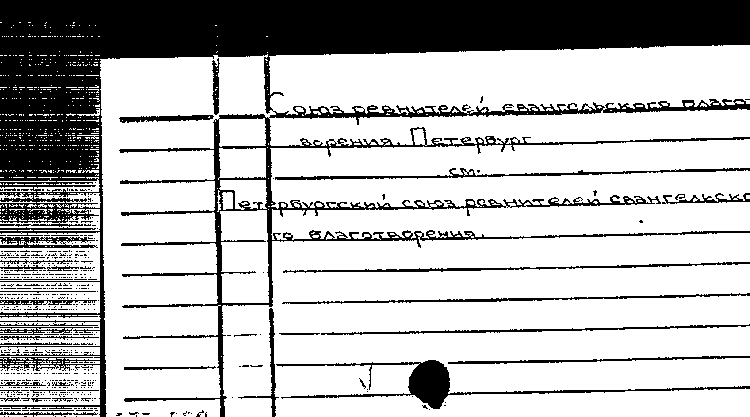 Союз ревнителей евангельского благот
ворения. Петербург
см.
Петербургский союз ревнителей евангельско
го благотворения.